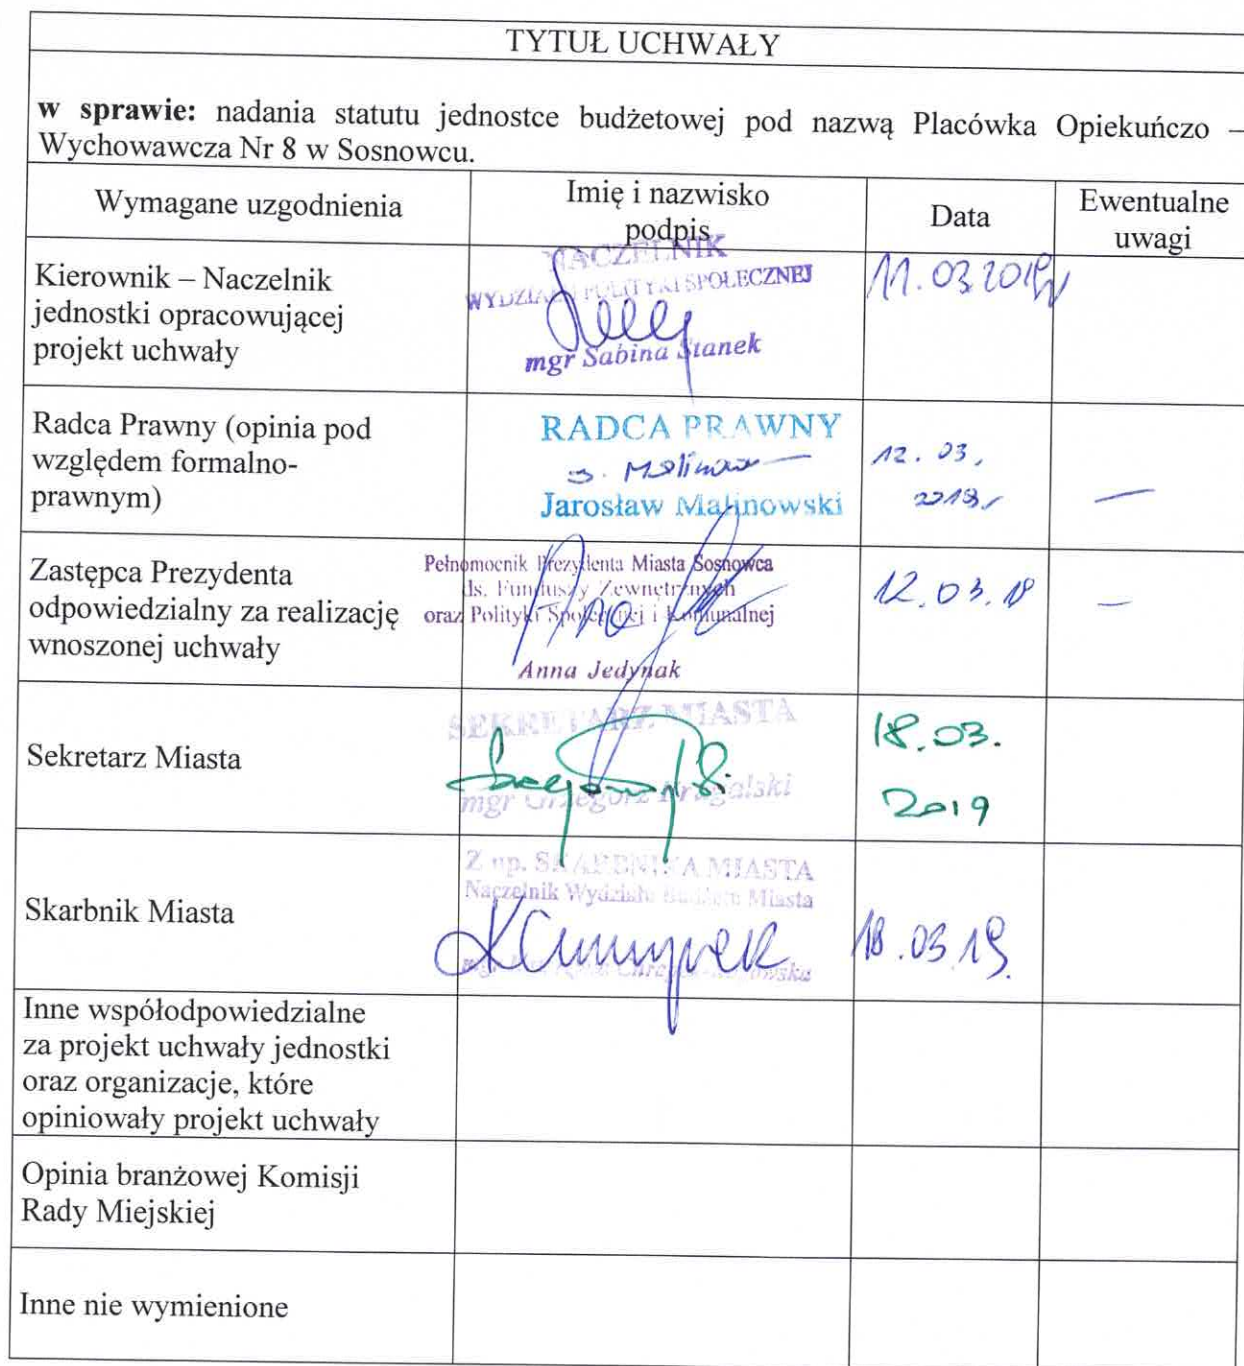 TYTUŁ UCHWAŁY
w sprawie: nadania statutu jednostce budżetowej pod nazwą Placówka Opiekuńczo –
Wychowawcza Nr 8 w Sosnowcu.
Wymagane uzgodnienia
Imię i nazwisko
podpis
Data
Ewentualne
uwagi
Kierownik – Naczelnik
jednostki opracowującej
projekt uchwały
NACZELNIK
WYDZIAŁU POLITYKI SPOŁECZNEJ
mgr Sabina Stanek
11.03.2019
Radca Prawny (opinia pod
względem formalno-
prawnym)
RADCA PRAWNY
Jarosław Malinowski
12.03.
2019
–
Zastępca Prezydenta
odpowiedzialny za realizację
wnoszonej uchwały
Pełnomocnik Prezydenta Miasta Sosnowca
ds. Funduszy Zewnętrznych
oraz Polityki Społecznej i Komunalnej
Anna Jedynak
12.03.19
–
Sekretarz Miasta
SEKRETARZ MIASTA
mgr Grzegorz
18.03.
2019
Skarbnik Miasta
Z up. SKARBNIKA MIASTA
Naczelnik Wydziału Budżetu Miasta
mgr
18.03.19.
Inne współodpowiedzialne
za projekt uchwały jednostki
oraz organizacje, które
opiniowały projekt uchwały
Opinia branżowej Komisji
Rady Miejskiej
Inne nie wymienione